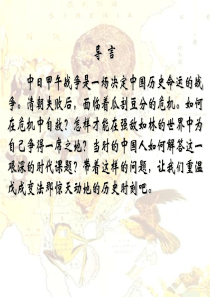 导 言
中日甲午战争是一场决定中国历史命运的战
争。清朝失败后,面临着瓜剖豆分的危机。如何
在危机中自救?怎样才能在强敌如林的世界中为
自己争得一席之地?当时的中国人如何解答这一
艰深的时代课题?带着这样的问题,让我们重温
戊戌变法那惊天动地的历史时刻吧。